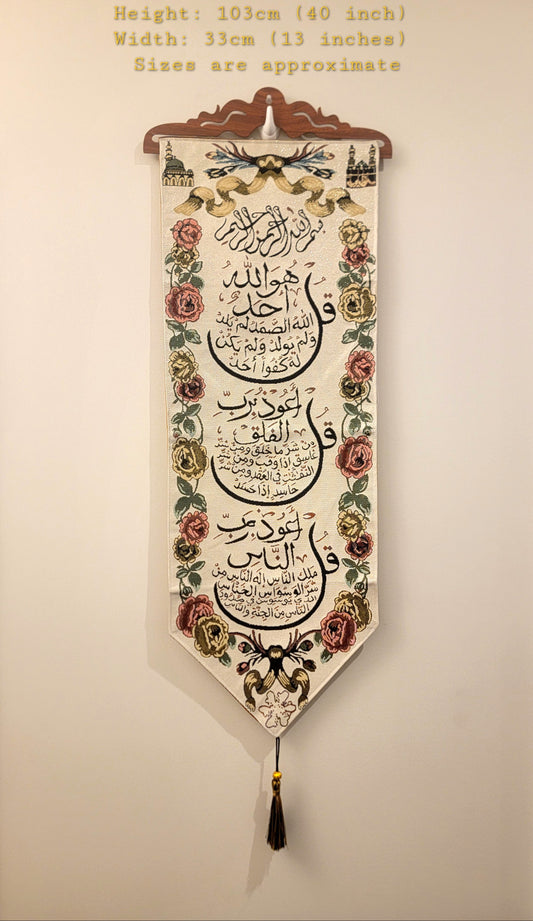 Height: 103cm (40 inch)
Width: 33cm (13 inches)
Sizes are approximate
بسم الله الرحمن الرحيم
قُل هوَ الله
أحد
الله الصَّمَد لَم يَلد
وَلَم يولد وَلَم يَكُن
لَهُ كُفُوا أحَد
قُل أعُوذ بِرَبِّ
الفَلَق
مِن شَرّ مَا خَلَق وَمِن شَر
غَاسِق إذَا وَقَب وَمِن شَر
النَّفَّثَت فِي العُقَد وَمِن شَر
حَاسِد إذَا حَسَد
قُل أعُوذ بِرَبِّ
النَّاس
مَلِك النَّاس إلَه النَّاس مِن
شَرّ الوَسوَاس الخَنَّاس
الَّذِي يُوَسوِس فِي صُدُور
النَّاس مِنَ الجِنَّة وَالنَّاس